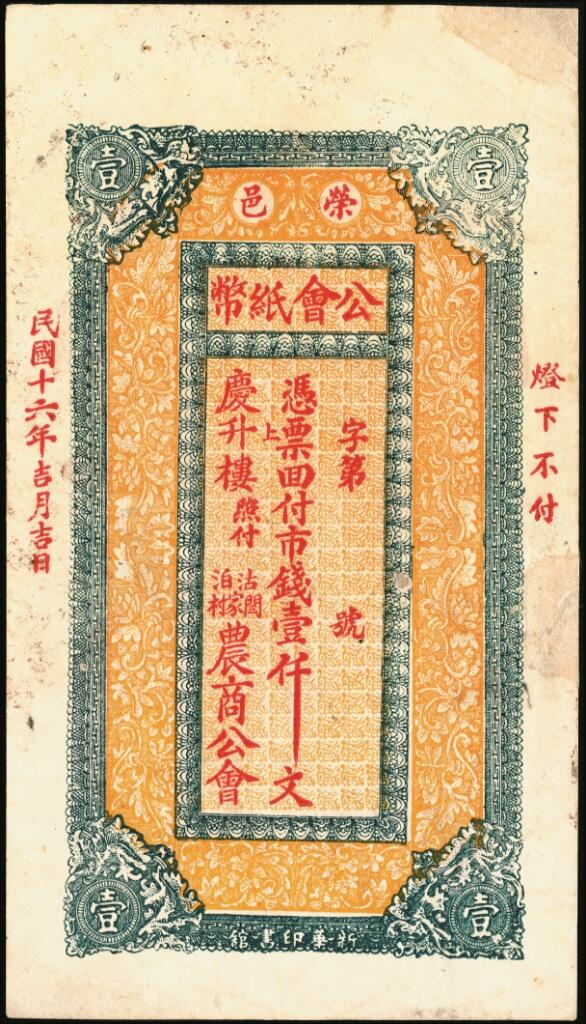 壹
壹
榮邑
公會紙幣
字第 號
憑票回付市錢壹仟文
上
慶升樓照付
沽閻家
泊村
農商公會
燈下不付
民國十六年吉月吉日
壹
壹
新華印書館